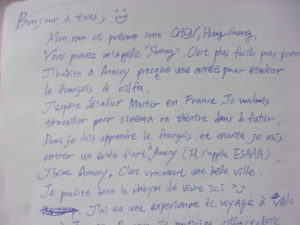 Bonjour à tous, :D
Mon nom et prénom sont CHEN, Hung-sheng.
Vous pouvez m'appelle "Sheng". C'est plus facile pour
J'habite à Annecy presque une année pour étudier
le français à cilfa.
J'espère d'étudier Master en France. Je voudrais
travailler pour cinéma ou théâtre dans le futur.
Donc je dois apprendre le français, et ensuite je vais
entrer un école d'art à Annecy (Il s'appelle ESAAA)
J'aime Annecy, C'est vraiment une belle ville.
Je profite bien le de vivre ici
J'ai eu une experience de voyage à vélo